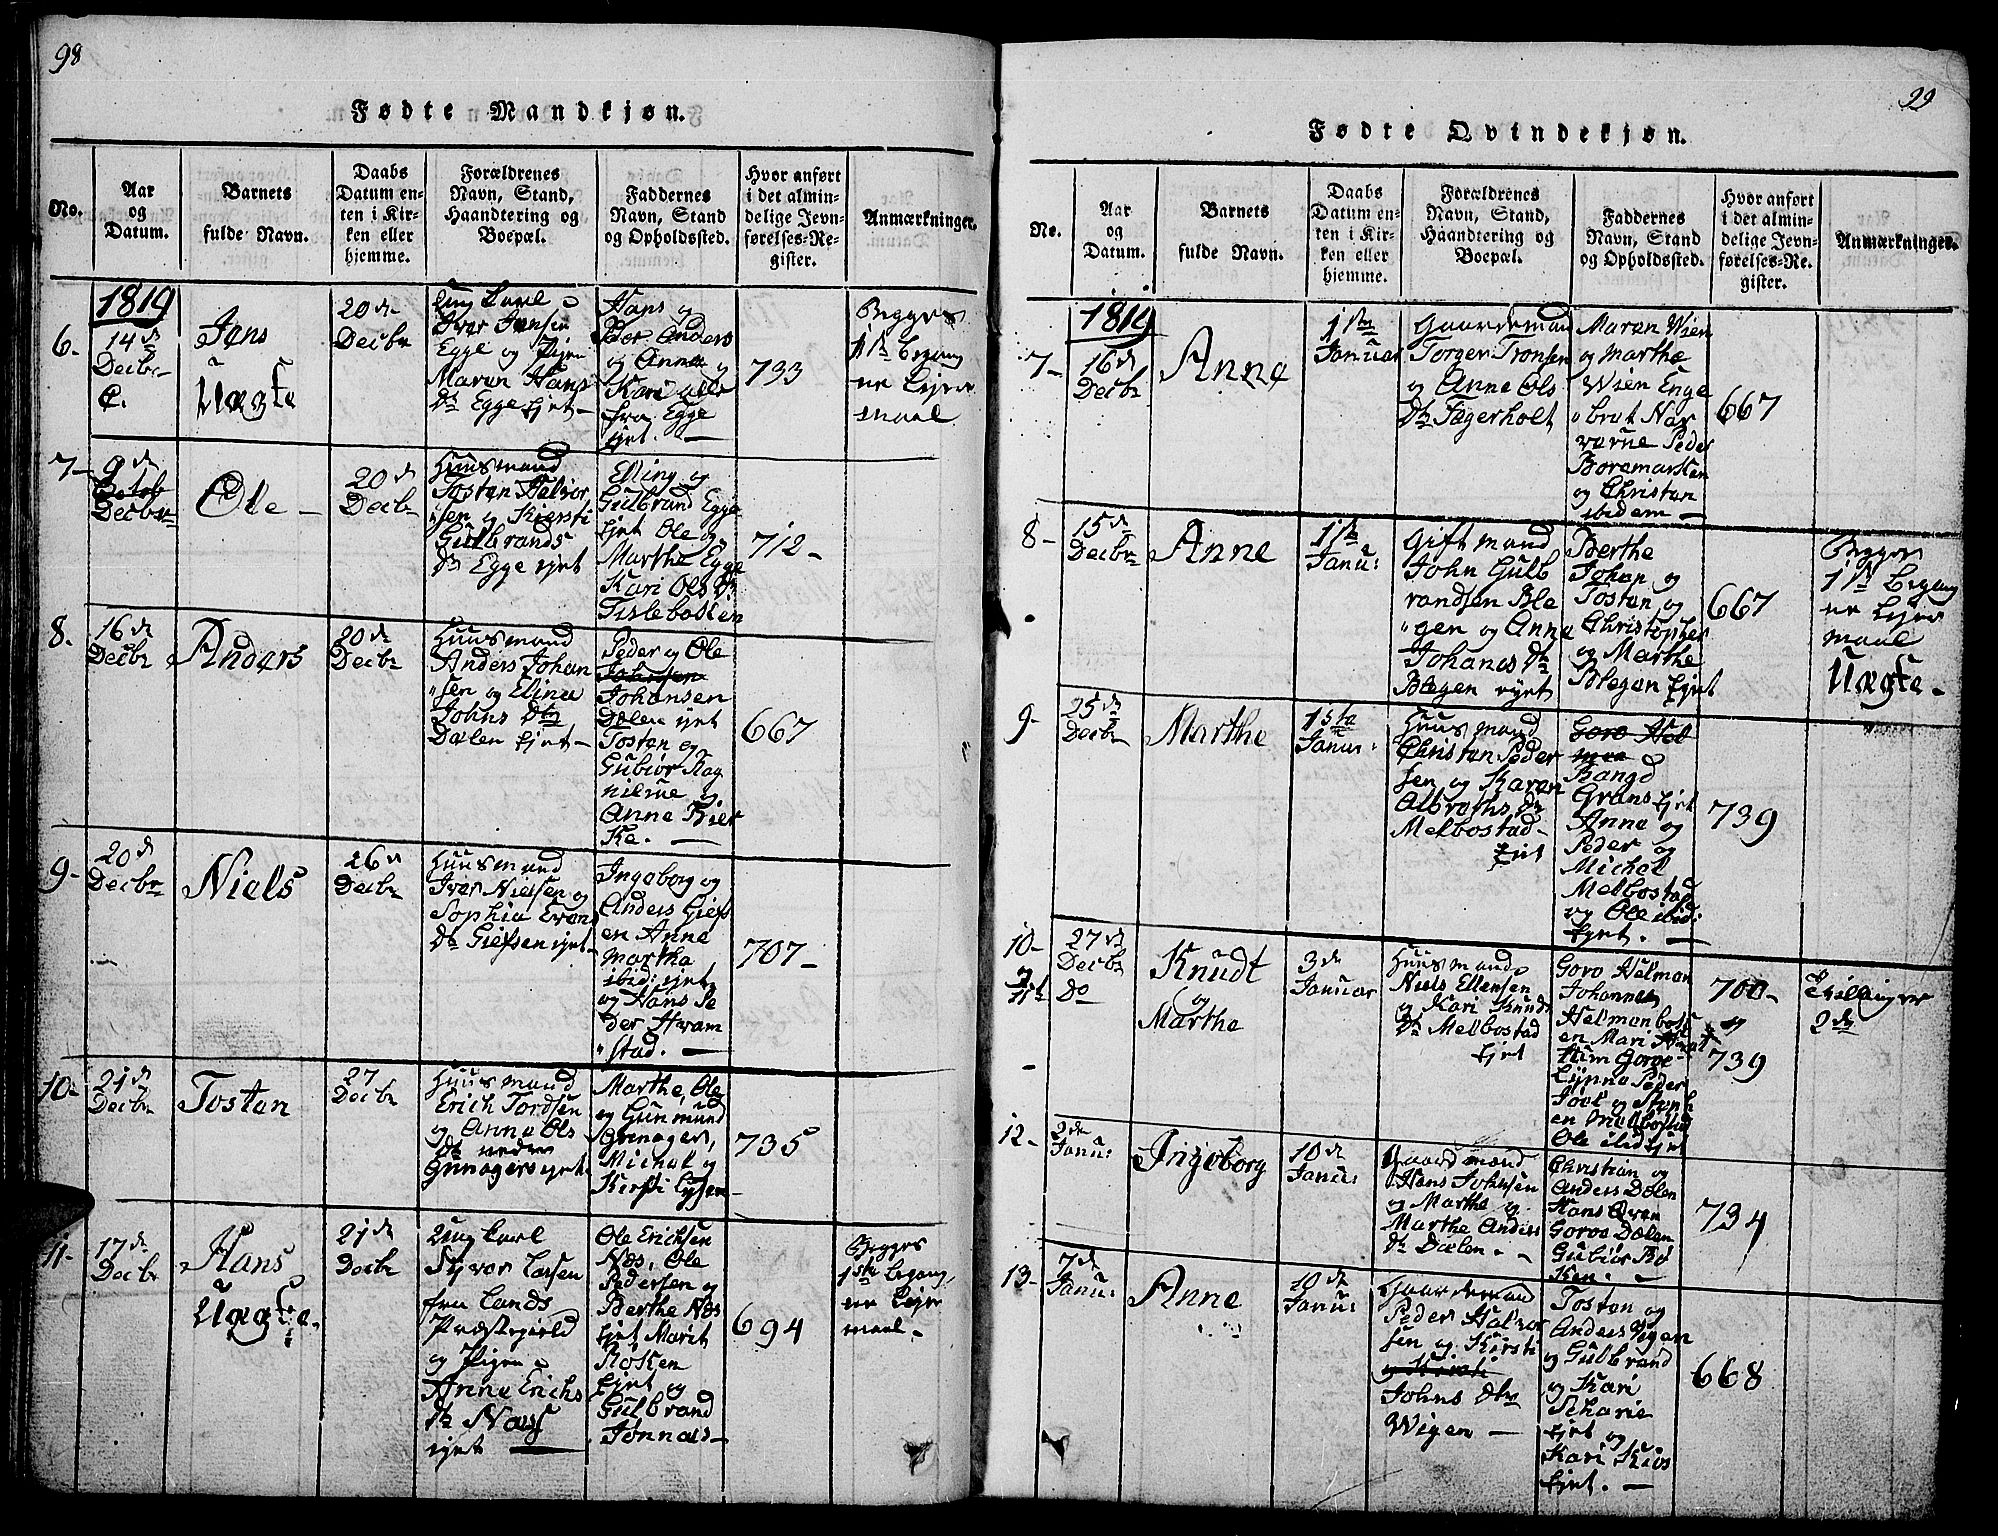 98
Fødte Mandkjøn.
No.
Aar
og
Datum.
Barnets
fulde Navn.
Daabs
Datum en-
ten i Kir-
ken eller
hjemme.
Forældrenes
Navn, Stand,
Haandtering og
Boepæl.
Faddernes
Navn, Stand
og Opholdssted.
Hvor anført
i det almin-
delige Jevn-
førelses-Re-
gister.
Anmærkninger.
1819
6.
14de
Decbr
C.
Jens
Uægte
20de
Decbr
Ung karl
Iver Jensen
Egge og Pigen
Maren Hans
Dtr Egge ejet
Hans og
Peer Anders
og Anne og
Kari alle
fra Egge
ejet.
733
Begges
1ste begang
ne Lejer
maal
7-
9de
Octob
Decbr
Ole -
20de
Decbr
Huusmand
Tosten Halvor
sen og Kiersti
Gulbrands
Dtr Egge ejet
Elling og
Gulbrand Egge
ejet Ole og
Marthe Egge
Kari Ols Dtr
Tislebosten
712-
8.
16de
Decbr
Anders
20de
Decbr
Huusmand
Anders Johan
sen og Elina
Johns Dtr
Dælen ejet-
Peder og Ole
Johnsen
Johansen
Dælen ejet
Tosten og
Gubiør Rog
nilrue og
Anne Kier
ke.
667
9-
20de
Decbr
Niels
26de
Decbr
Huusmand
Iver Nielsen og
Sophia Evens
Dtr Giefsen ejet-
Ingeborg og
Anders Giefs
en Anne
Martha
ibid: ejet
og Hans Pe
der Hvam
stad.
707-
10-
21de
Decbr
Tosten
27
Decbr
Huusmand
Erich Tordsen
og Anne Ols
Dtr nedre
Gnnagers ejet
Marthe, Ole
og Gunmund
Michel og
735
11-
17de
Decbr
Hans
Uægte.
21de
Decbr
Ung karl
Syver Larsen
fra Lands
Præstegield
og Pigen
Anne Erichs
Dtr Næss
ejet
Ole Erichsen
Næs, Ole
Pedersen og
Berthe Næs
ejet Marit
Røken
ejet og
Gulbrand
Jonnæs-
694
Begges
1ste begang
ne Lejer
maal-
99
Fødte Qvindekjøn.
No.
Aar
og
Datum.
Barnets
fulde Navn.
Daabs
Datum en-
ten i Kir-
ken eller
hjemme.
Forældrenes
Navn, Stand,
Haandtering og
Boepæl.
Faddernes
Navn, Stand
og Opholdssted.
Hvor anført
i det almin-
delige Jevn-
førelses-Re-
gister.
Anmærkninger.
1819
7-
16de
Decbr
Anne
1ste
Januar
Gaardemand
Torger Tronsen
og Anne Ols
Dtr Fægerholt
Maren Wien
og Marthe
Wien Enge
bret Nær
Peder
Boremarsten
og Christen
ibidem
667
8-
15de
Decbr
Anne
1ste
Janu:
Gift mand
John Gulb
randsen Ble
gen og Anne
Johanes Dtr
Blegen ejet
Berthe
Johan og
Tosten og
Christopher
og Marthe
Blegen ejet
667
Begges
1ste begang
ne Lejer
maal
Uægte-
9-
25de
Decbr
Marthe
1ste
Janu:
Huusmand
Christen Peder
sen og Karen
Albreths Dtr
Melbostad-
Ejet
Goro Hel
men
Bangd
Grans Ejet
Anne og
Peder og
Michel
Melbostad
og Ole ibid:
Ejet.
739
10-
og
11te
27de
Decbr
Do
Knudt
og
Marthe
3de
Januar
Huusmand
Niels Ellensen
og Kari Knuds
Dtr Melbostad
Ejet
Goro Helmen
Johannes
Helmenbost
en Mari
Lynne Peder
en Melbostad
Ole ibid Ejet
700-
og
739
Tvillinger
2de
12-
2de
Janu:
Ingeborg
10de
Janu:
Gaardmand
Hans Johnsen
og Marthe og
Marthe Anders
Dtr Dælen.
Christian og
Anders Dælen
Hans Qvan
Goroe Dælen
Gubiør Rø
ken.
734
13-
7de
Janu:
Anne
10de
Janu:
Gaardemand
Peder Halvor
sen og Kirsti
og Kirsti
Johns dtr
Wigen -
Tosten og
Anders Wigen
og Gulbrand
og Kari
Scharie
Ejet og
Kari Kiøs
Ejet.
668